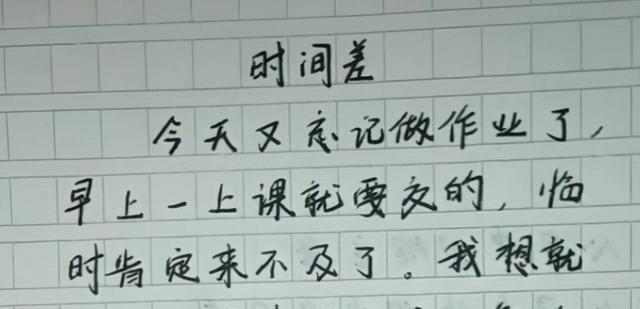 时间差
今天又忘记做作业了，
早上一上课就要交的，临
时肯定来不及了。我想就